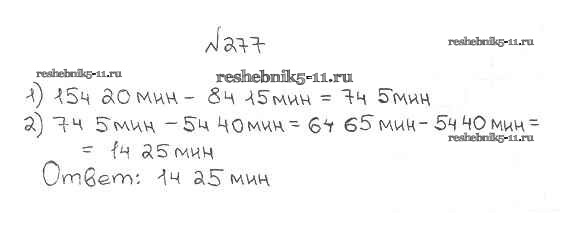 №277
reshebnik5-11.ru
reshebnik5-11.ru
reshebnik5-11.ru
1) 15ч 20мин - 8ч 15мин = 7ч 5мин
2) 7ч 5мин - 5ч 40мин = 6ч 65мин - 5ч 40мин =
reshebnik5-11.ru
= 1ч 25мин
Ответ: 1ч 25мин